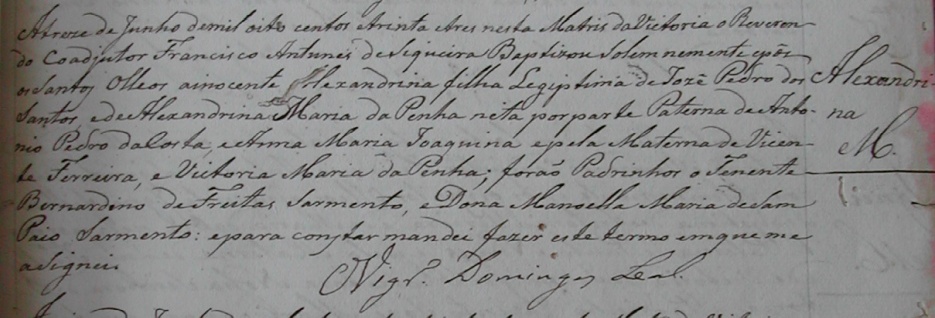 Atreze de Junho demil oito centos etrinta etres nesta Matris da Victoria o Reveren-
do Coadjutor Francisco Antunes de Siqueira Baptizou Solemnemente epôs
os Santos Olleos ainocente Alexandrina filha Legiptima de Jozé Pedro dos
Santos, e de Alexandrina Maria da Penha neta por parte Paterna de Anto-
nio Pedro da Costa, e Anna Maria Joaquina e pela Materna de Vicen-
te Ferreira, e Victoria Maria da Penha; forão Padrinhos o Tenente
Bernardino de Freitas Sarmento, e Dona Manoella Maria de Sam
Paio Sarmento: epara constar mandei fazer este termo emque me
asignei.
O Vigrº. Domingos Leal.
Alexandri-
na
M.